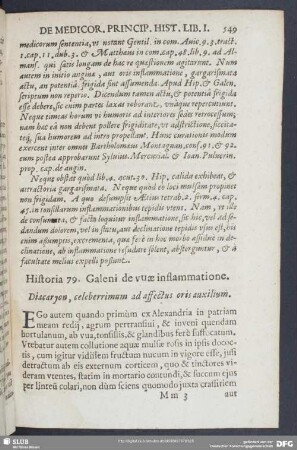 DE MEDICOR. PRINCIP. HIST. LIB. I. 549
medicorum sententia, vt notant Gentil. in com. Auic. 9.3. tract.
1. cap. 11. dub. 3. & Matthæus in com. cap. 48. lib. 9. ad Al-
mans. qui satis longam de hac re quæstionem agitarunt. Num
autem in initio anginæ, aut oris inflammatione, gargarismata
actu, an potentia frigida sint assumenda. Apud Hip. & Galen.
scriptum non reperio. Dicendum tamen actu, & potentia frigida
esse debere, sic enim partes laxas roborant, vndique repercutiunt.
Neque timeas horum vi humores ad interiores sedes retrocessum,
nam hoc ea non debent pollere frigiditate, vt adstrictione, siccita-
teq; sua humorem ad intro propellant. Hunc curationis modum
exercent inter omnes Bartholomæus Montagnan. cons. 91. & 92.
eum postea approbarunt Syluius, Mercurial. & Ioan. Puluerin.
prop. cap. de angin.
Neque obstat quod lib. 4. acut. 30. Hip. calida exhibeat, &
attractoria gargarismata. Neque quod ex loci muslsum propinet
non frigidum. A quo desumpsit Aëtius tetrab. 2. serm. 4. cap.
45. in tonsillarum inflammationibus tepidis vtens. Nam, vt ille
de consumata, & facto loquitur inflammatione, sic hic, vel ad se-
dandum dolorem, vel in statu, aut declinatione tepidis vsus est, his
enim assumptis, excrementa, quæ ferè in hoc morbo assidue in de-
clinatione, ab inflammatione resudare solent, absterguntur, & à
facultate melius expelli possunt.
Historia 79. Galeni de vuæ inflammatione.
Diacaryon, celeberrimum ad affectus oris auxilium.
EGo autem quando primùm ex Alexandria in patriam
meam redij, agrum pertransiui, & inueni quendam
hortulanum, ab vua, tonsillis, & glandibus ferè suffocatum.
Vtebatur autem collutione aquæ mulsæ rosis in ipsis decoc-
tis, cum igitur vidissem fructum nucum in vigore esse, iussi
detractum ab eis externum corticem, quo & tinctores vi-
deram vtentes, statim in mortario contundi, & succum ejus
per linteū colari, non dùm sciens quomodo juxta crassitiem
M m 3 aut
SLUB
DFG